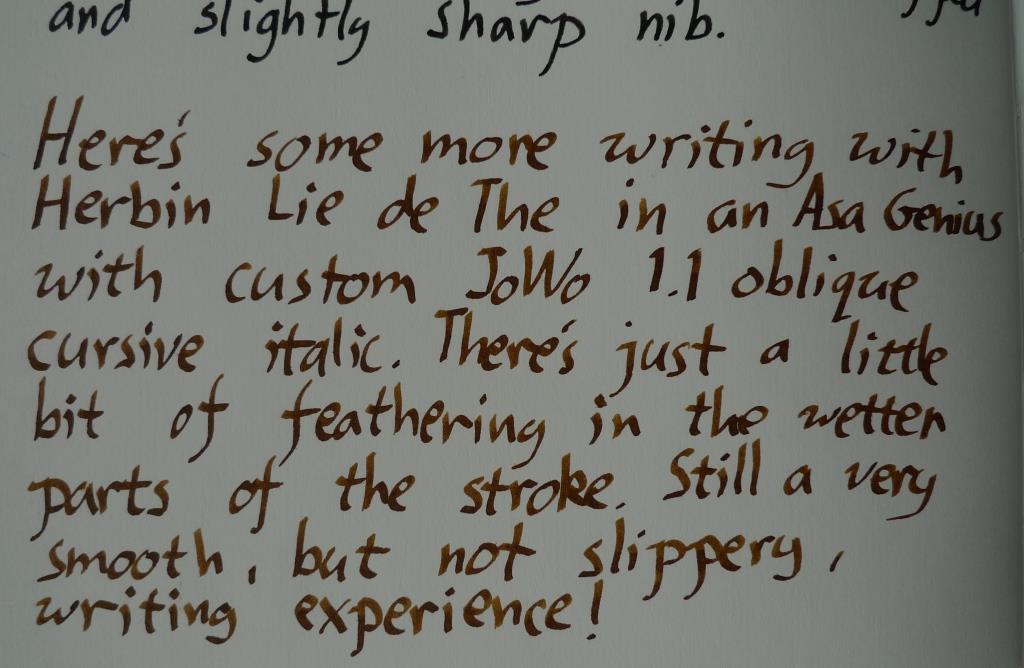 and slightly sharp nib.
Here's some more writing with
Herbin Lie de The in an Asa Genius
with custom JoWo 1.1 oblique
cursive italic. There's just a little
bit of feathering in the wetter
parts of the stroke. Still a very
smooth, but not slippery,
writing experience!